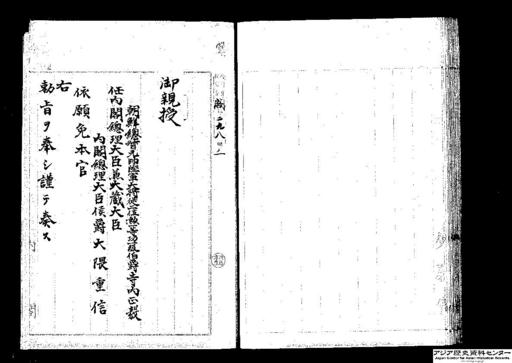 御親授
朝鮮總督元帥陸軍大將從二位勲一等功一級伯爵寺內正毅
任內閣總理大臣兼大藏大臣
內閣總理大臣侯爵大隈重信
依願免本官
右
勅旨ヲ奉シ謹テ奏ス
アジア歴史資料センター
Japan Center for Asian Historical Records